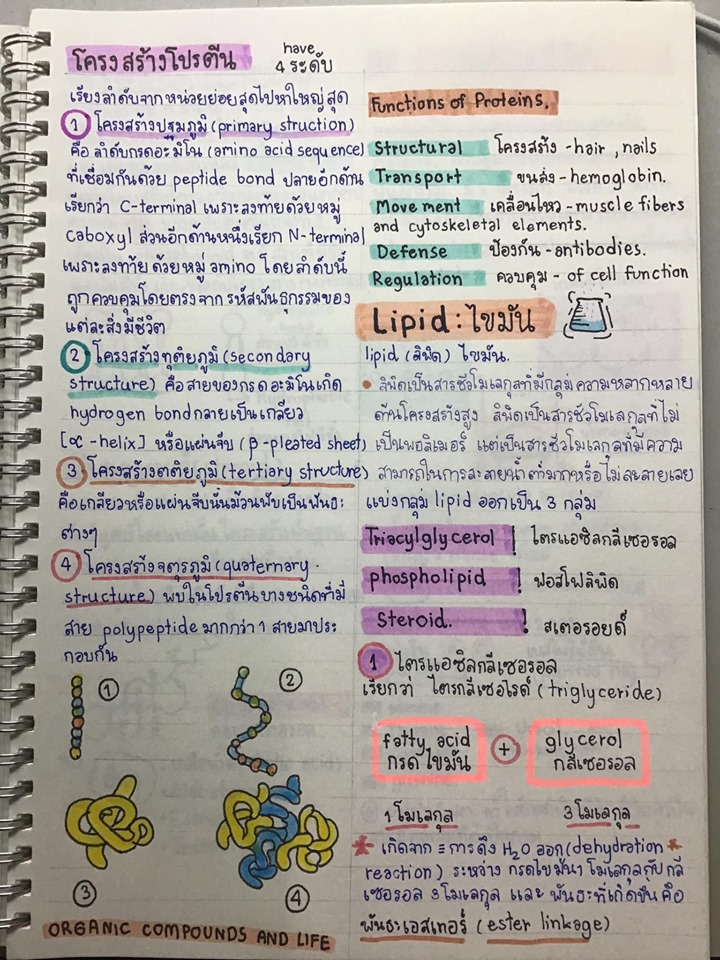 โครงสร้างโปรตีน have
4 ระดับ
เรียงลำดับจากหน่วยย่อยสุดไปหาใหญ่สุด
① โครงสร้างปฐมภูมิ (primary struction)
คือ ลำดับกรดอะมิโน (amino acid sequence)
ที่เชื่อมกันด้วย peptide bond ปลายอีกด้าน
เรียกว่า C-terminal เพราะลงท้ายด้วยหมู่
caboxyl ส่วนอีกด้านหนึ่งเรียก N-terminal
เพราะลงท้ายด้วยหมู่ amino โดยลำดับนี้
ถูกควบคุมโดยตรงจาก รหัสพันธุกรรมของ
แต่ละสิ่งมีชีวิต
② โครงสร้างทุติยภูมิ (secondary
structure) คือสายของกรดอะมิโนเกิด
hydrogen bond กลายเป็นเกลียว
[∝ -helix] หรือแผ่นจีบ (β -pleated sheet)
③ โครงสร้างตติยภูมิ (tertiary structure)
คือเกลียวหรือแผ่นจีบนั้นม้วนพับเป็นพันธะ
ต่างๆ
④ โครงสร้างจตุรภูมิ (quaternary
structure) พบในโปรตีนบางชนิดที่มี
สาย polypeptide มากกว่า 1 สายมาประ
กอบกัน
①
②
③
④
ORGANIC COMPOUNDS AND LIFE
Functions of Proteins.
Structural โครงสร้าง -hair , nails
Transport ขนส่ง - hemoglobin.
Movement เคลื่อนไหว - muscle fibers
and cytoskeletal elements.
Defense ป้องกัน - antibodies.
Regulation ควบคุม - of cell function
Lipid : ไขมัน
lipid (ลิพิด) ไขมัน.
• ลิพิดเป็นสารชีวโมเลกุลที่มีกลุ่มความหลากหลาย
ด้านโครงสร้างสูง ลิพิดเป็นสารชีวโมเลกุลที่ไม่
เป็นพอลิเมอร์ แต่เป็นสารชีวโมเลกุลที่มีความ
สามารถในการละลายน้ำต่ำมากหรือไม่ละลายเลย
แบ่งกลุ่ม lipid ออกเป็น 3 กลุ่ม
Triacylglycerol ! ไตรแอซิลกลีเซอรอล
phospholipid ! ฟอสโฟลิพิด
Steroid. ! สเตอรอยด์
① ไตรแอซิลกลีเซอรอล
เรียกว่า ไตรกลีเซอไรด์ (triglyceride)
fatty acid + glycerol
กรดไขมัน กลีเซอรอล
1 โมเลกุล 3 โมเลกุล
* เกิดจาก = การดึง H₂O ออก (dehydration *
reaction) ระหว่าง กรดไขมัน 1 โมเลกุลกับ กลี
เซอรอล 3 โมเลกุล และ พันธะที่เกิดขึ้น คือ
พันธะเอสเทอร์ (ester linkage)